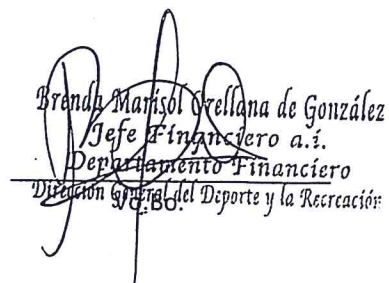 Brenda Marisol Orellana de González
Jefe Financiero a.i.
Departamento Financiero
Dirección General del Deporte y la Recreación
Vo.Bo.